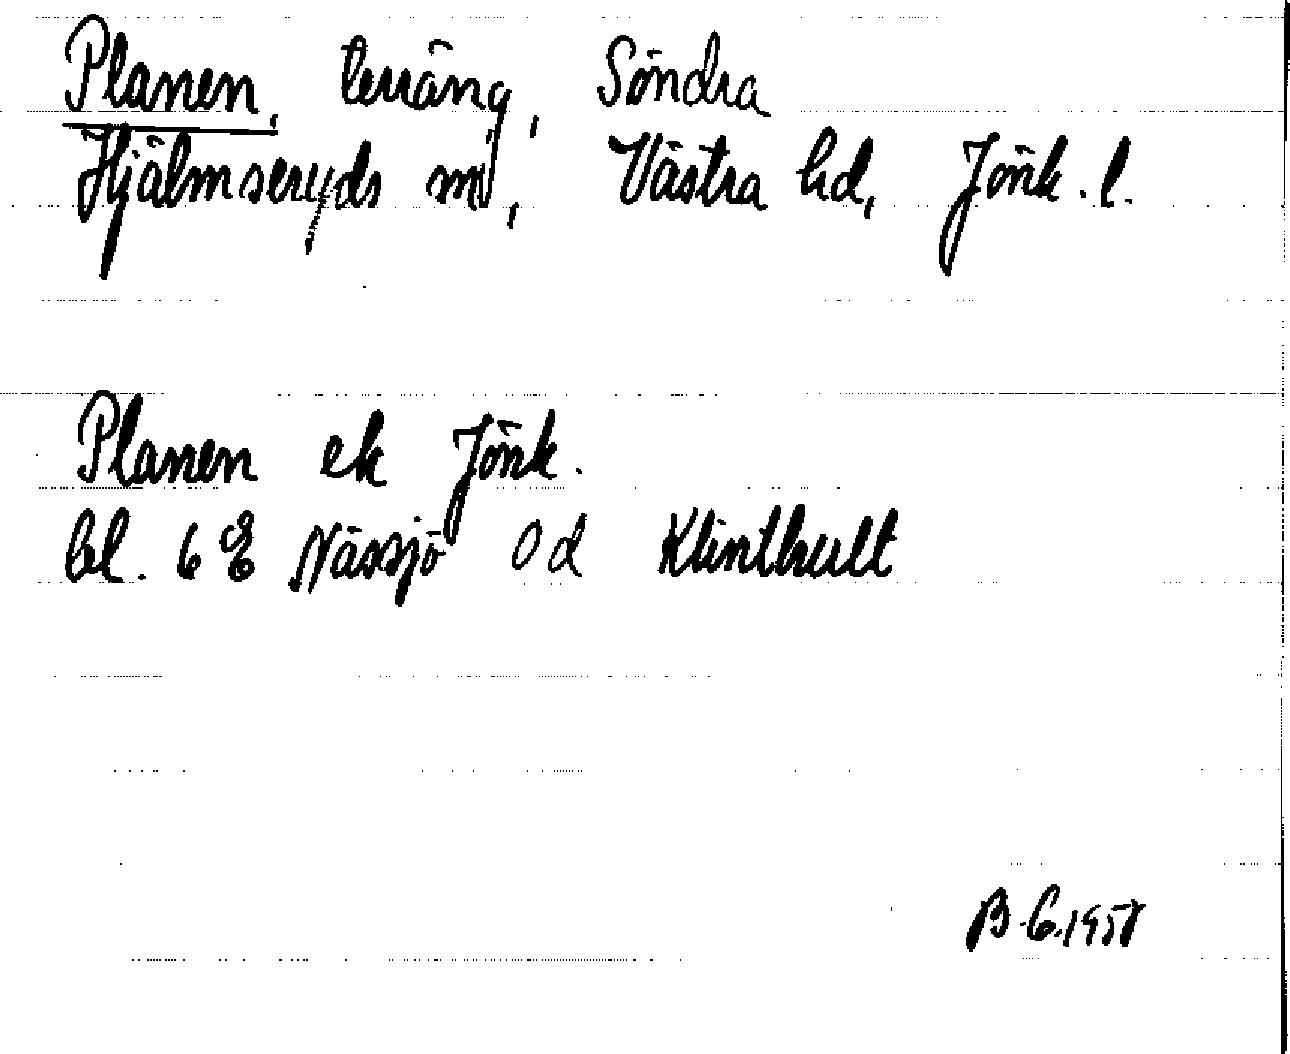 Planen, terräng, Södra
Hjälmseryds sn, Västra hd, Jönk. l.
Planen ek Jönk.
bl. 6 E Nässjö 0d Klinthult
B. G. 1957